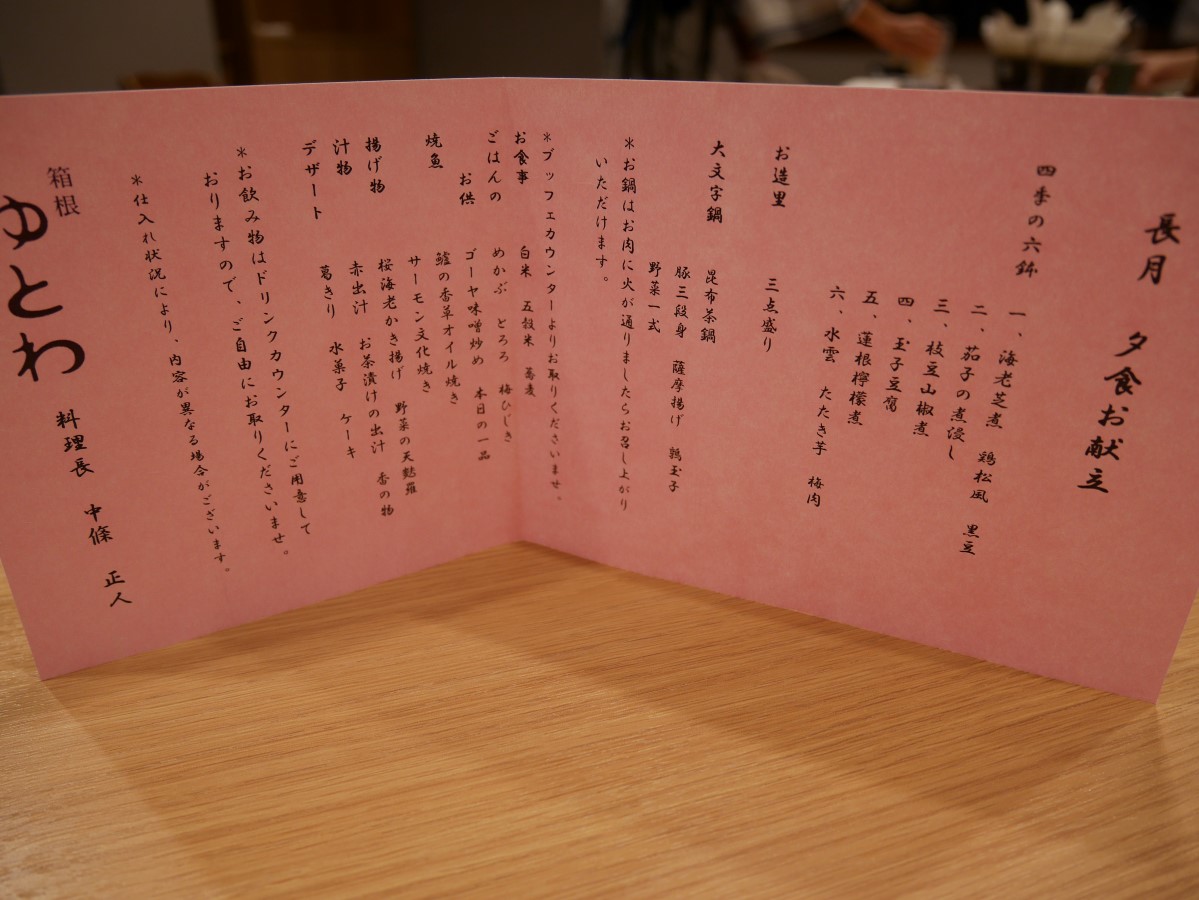 長月　夕食お献立
四季の六鉢
一、海老芝煮　鶏松風　黒豆
二、茄子の煮浸し
三、枝豆山椒煮
四、玉子豆腐
五、蓮根檸檬煮
六、水雲　たたき芋　梅肉
お造里　三点盛り
大文字鍋　昆布茶鍋
豚三段身　薩摩揚げ　鶉玉子
野菜一式
＊お鍋はお肉に火が通りましたらお召し上がり
いただけます。
＊ブッフェカウンターよりお取りくださいませ。
お食事　白米　五穀米　蕎麦
ごはんの　めかぶ　とろろ　梅ひじき
お供　ゴーヤ味噌炒め　本日の一品
焼魚　鱸の香草オイル焼き
サーモン文化焼き
揚げ物　桜海老かき揚げ　野菜の天麩羅
汁物　赤出汁　お茶漬けの出汁　香の物
デザート　葛きり　水菓子　ケーキ
＊お飲み物はドリンクカウンターにご用意して
おりますので、ご自由にお取りくださいませ。
＊仕入れ状況により、内容が異なる場合がございます。
箱根
ゆとわ
料理長　中條　正人